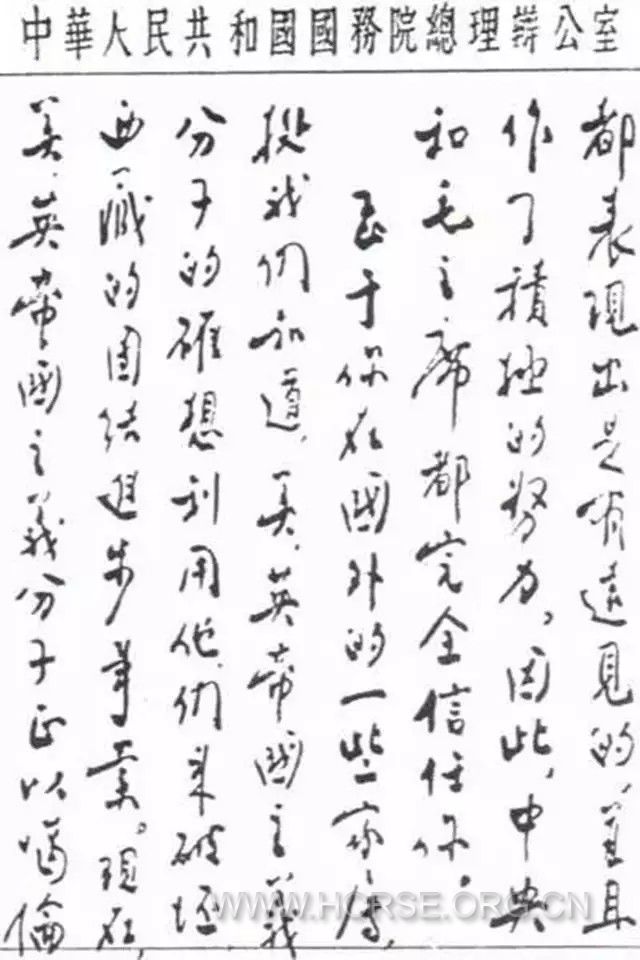 中華人民共和國國務院總理辦公室
都表現出是有遠見的,並且
作了積極的努力,因此,中央
和毛主席都完全信任你。
至于你在國外的一些家屬,
據我們知道,美、英帝國主義
分子的確想利用他們來破坯
西藏的团結進步事業。現在,
美、英帝國主義分子正以噶倫
WWW.HORSE.ORG.CN